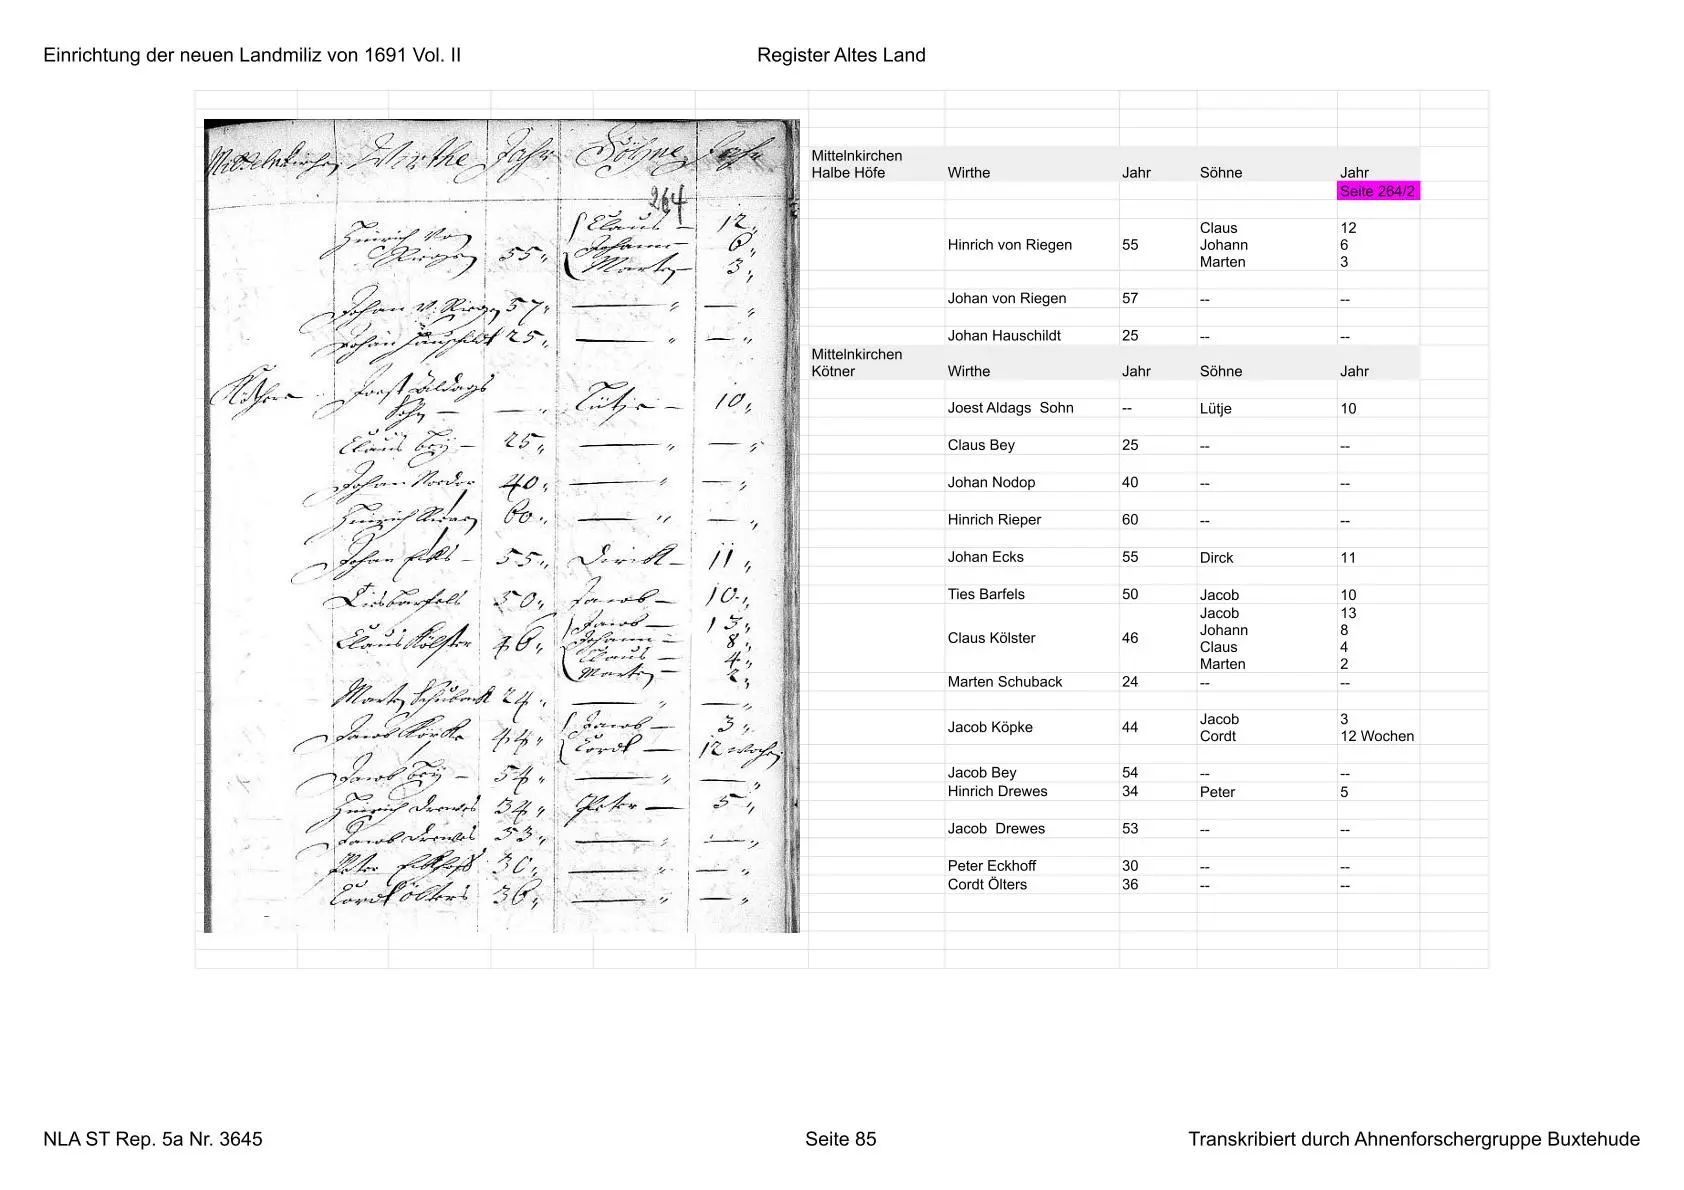 Einrichtung der neuen Landmiliz von 1691 Vol. II
Register Altes Land
Mittelnkirchen Wirthe Jahr Söhne Jahr
264
Hinrich von Riegen 55 Claus 12
Johann 6
Marten 3
Johan v. Riegen 57
Johan Hauschildt 25
Köthere Joest Aldags Sohn Lütje 10
Claus Bey 25
Johan 40
Hinrich 60
Johan Ecks 55 Dirick 11
Ties Barfels 50 Jacob 10
Claus Kölster 46 Jacob 13
Johann 8
Claus 4
Marten 2
Marten Schuback 24
Jacob Köpke 44 Jacob 3
Cordt 12 Wochen
Jacob Bey 54
Hinrich Drewes 34 Peter 5
Jacob Drewes 53
Peter Eckhoff 30
Cordt Ölters 36
Mittelnkirchen
Halbe Höfe Wirthe Jahr Söhne Jahr
Seite 264/2
Claus 12
Hinrich von Riegen 55 Johann 6
Marten 3
Johan von Riegen 57 -- --
Johan Hauschildt 25 -- --
Mittelnkirchen
Kötner Wirthe Jahr Söhne Jahr
Joest Aldags Sohn -- Lütje 10
Claus Bey 25 -- --
Johan Nodop 40 -- --
Hinrich Rieper 60 -- --
Johan Ecks 55 Dirck 11
Ties Barfels 50 Jacob 10
Jacob 13
Claus Kölster 46 Johann 8
Claus 4
Marten 2
Marten Schuback 24 -- --
Jacob Köpke 44 Jacob 3
Cordt 12 Wochen
Jacob Bey 54 -- --
Hinrich Drewes 34 Peter 5
Jacob Drewes 53 -- --
Peter Eckhoff 30 -- --
Cordt Ölters 36 -- --
NLA ST Rep. 5a Nr. 3645
Seite 85
Transkribiert durch Ahnenforschergruppe Buxtehude